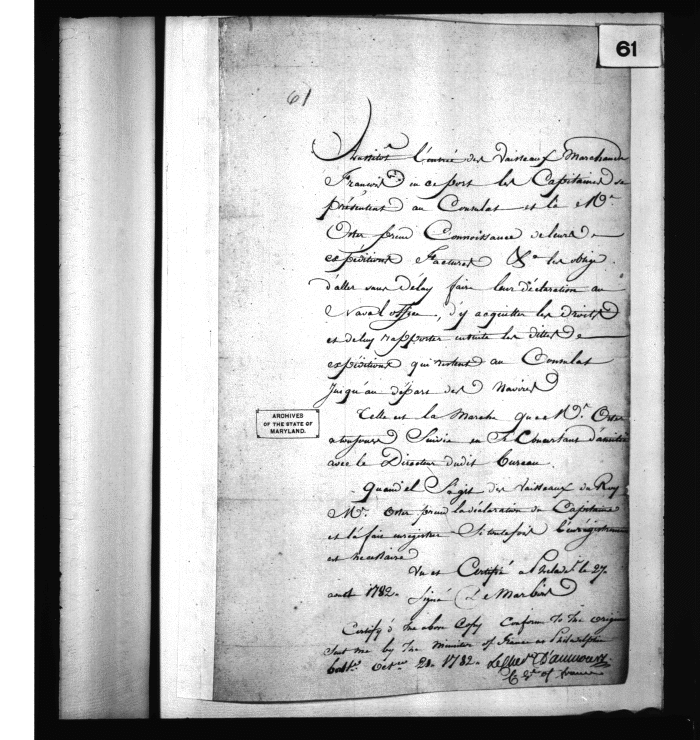 61
61
Aussitôt l'entrée des Vaisseaux Marchands
François en ce port les Capitaines se
présentent au Consulat et là Mr.
Oster prend Connoissance de leurs
expéditions Factures &a les oblige
d'aller sans délay faire leur déclaration au
Naval office, d'y acquitter les droits
et de luy rapporter ensuite les dittes
expéditions qui restent au Consulat
Jusqu'au départ des Navires
Telle est la Marche que Mr. Oster
a toujours Suivie en Se Concertant
avec le Directeur dudit Bureau.
Quand il S'agit des Vaisseaux du Roy
Mr. Oster prend la déclaration du Capitaine
et la fait enregistrer Si toutefois l'enregistrement
est necessaire
Vu et Certifié a Philade. le 27
aoust 1782. Signé De Marbois
Certify'd the above Copy Conform to the origin
Sent me by The Minister of France at Philadelphia
Balt. Octber 28. 1782. Le Cher D'annmours
Cl. of france
ARCHIVES
OF THE STATE OF
MARYLAND.